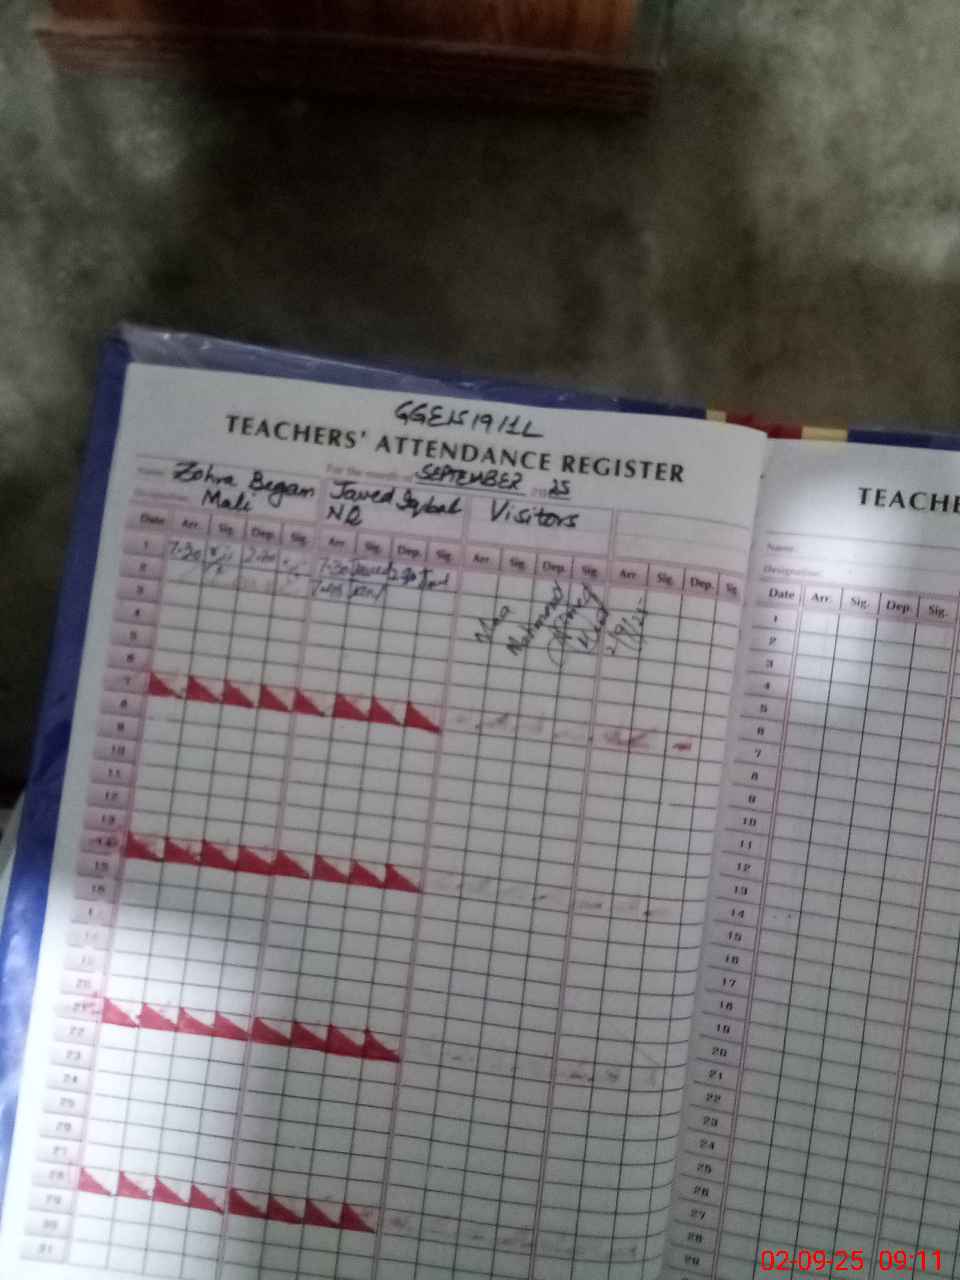 GGES 19/1L
TEACHERS' ATTENDANCE REGISTER
Name For the month of SEPTEMBER 2025
Zohra Begam Javed Iqbal Visitors
Designation Mali NQ
Date Arr. Sig. Dep. Sig. Arr. Sig. Dep. Sig. Arr. Sig. Dep. Sig. Arr. Sig. Dep. Sig.
1 7.30 2.30 7.30 Javed 2.30
2 7.45
3
4
5
6
7
8
9
10
11
12
13
14
15
16
17
18
19
20
21
22
23
24
25
26
27
28
29
30
31
Mahmood
Ahmed
2/9/25
TEACHE
Name
Designation
Date Arr. Sig. Dep. Sig.
1
2
3
4
5
6
7
8
9
10
11
12
13
14
15
16
17
18
19
20
21
22
23
24
25
26
27
28
29
02-09-25 09:11